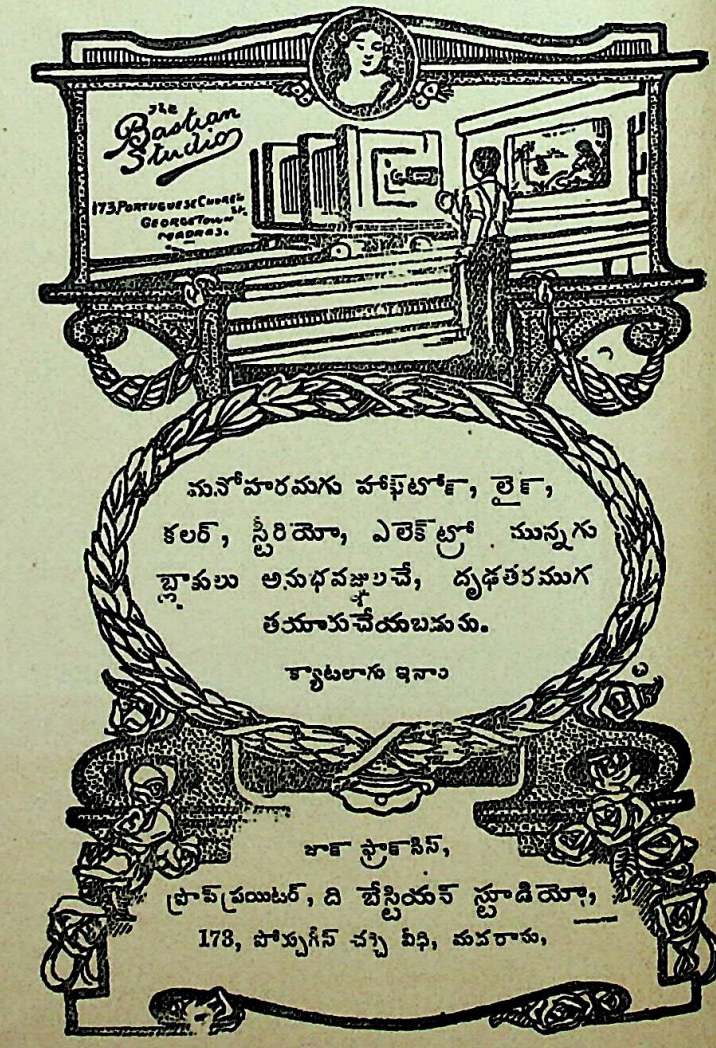 The
Bastian
Studio
173, PORTUGUESE CHURCH
St.
GEORGETOWN
MADRAS.
మనోహరమగు హాఫ్‌టోన్, లైన్,
కలర్, స్టీరియో, ఎలెక్ట్రో మున్నగు
బ్లాకులు అనుభవజ్ఞులచే, దృఢతరముగ
తయారుచేయబడును.
క్యాటలాగు ఇనాం
జాన్ ఫ్రాన్‌సిస్,
ప్రాప్రయిటర్, ది బేస్టియన్ స్టూడియో,
173, పోర్చుగీస్ చర్చి వీధి, మదరాసు,